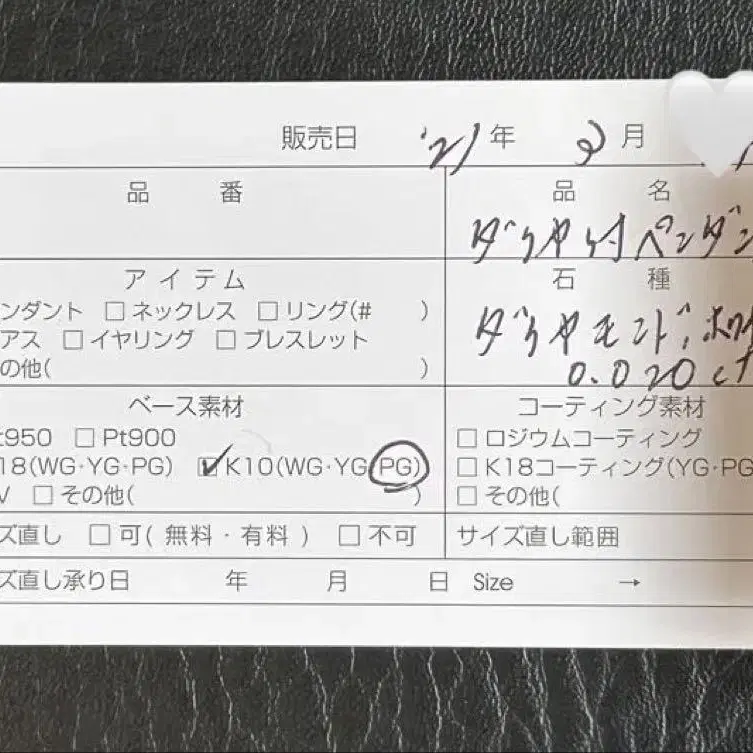 販売日 '21年 2月
品番 品名
ダイヤ付ペンダン
アイテム 石種
ンダント □ネックレス □リング(# )
アス □イヤリング □ブレスレット
ダイヤモンド,
の他( )
0.020ct
ベース素材 コーティング素材
t950 □Pt900 □ロジウムコーティング
18(WG・YG・PG) ☑K10(WG・YG・PG) □K18コーティング(YG・PG
V □その他( ) □その他(
ズ直し □可(無料・有料) □不可 サイズ直し範囲
ズ直し承り日 年 月 日 Size →